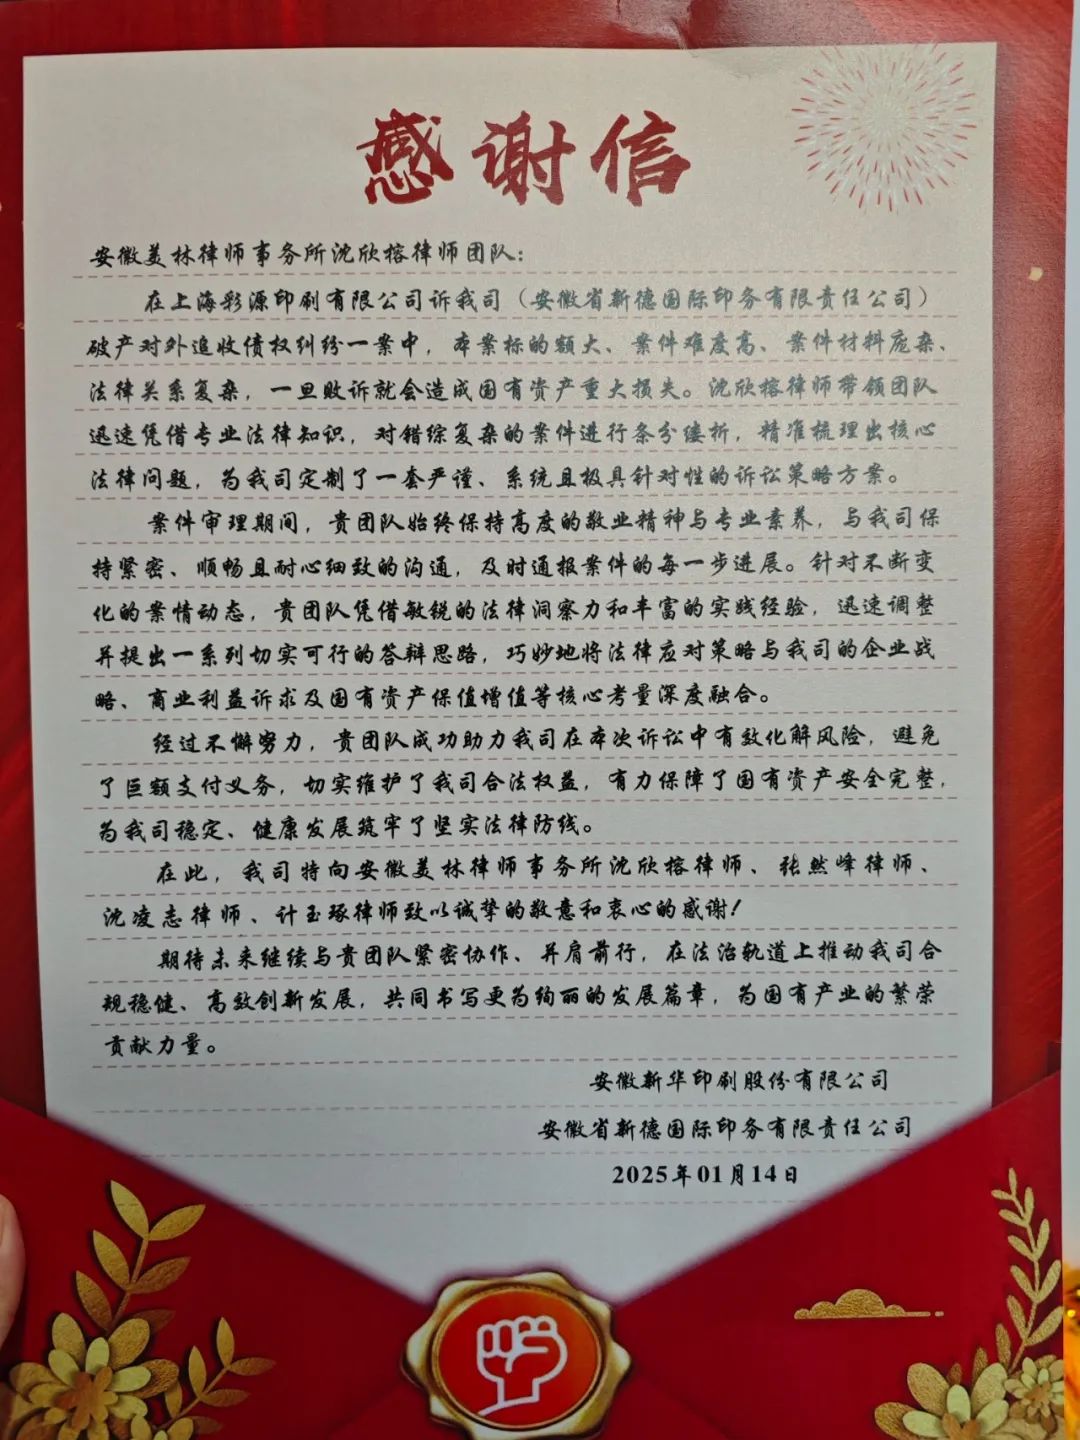 感谢信
安徽美林律师事务所沈欣榕律师团队：
在上海彩源印刷有限公司诉我司（安徽省新德国际印务有限责任公司）
破产对外追收债权纠纷一案中，本案标的额大、案件难度高、案件材料庞杂、
法律关系复杂，一旦败诉就会造成国有资产重大损失。沈欣榕律师带领团队
迅速凭借专业法律知识，对错综复杂的案件进行条分缕析，精准梳理出核心
法律问题，为我司定制了一套严谨、系统且极具针对性的诉讼策略方案。
案件审理期间，贵团队始终保持高度的敬业精神与专业素养，与我司保
持紧密、顺畅且耐心细致的沟通，及时通报案件的每一步进展。针对不断变
化的案情动态，贵团队凭借敏锐的法律洞察力和丰富的实践经验，迅速调整
并提出一系列切实可行的答辩思路，巧妙地将法律应对策略与我司的企业战
略、商业利益诉求及国有资产保值增值等核心考量深度融合。
经过不懈努力，贵团队成功助力我司在本次诉讼中有效化解风险，避免
了巨额支付义务，切实维护了我司合法权益，有力保障了国有资产安全完整，
为我司稳定、健康发展筑牢了坚实法律防线。
在此，我司特向安徽美林律师事务所沈欣榕律师、张然峰律师、
沈凌志律师、计玉琢律师致以诚挚的敬意和衷心的感谢！
期待未来继续与贵团队紧密协作、并肩前行，在法治轨道上推动我司合
规稳健、高效创新发展，共同书写更为绚丽的发展篇章，为国有产业的繁荣
贡献力量。
安徽新华印刷股份有限公司
安徽省新德国际印务有限责任公司
2025年01月14日